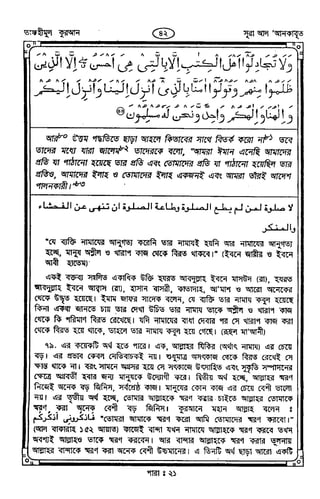 তাফহীমুল কুরআন
৪২
সূরা আল 'আনকাবূত
وَلَا تُجَادِلُوٓا أَهْلَ الْكِتٰبِ إِلَّا بِالَّتِي هِيَ أَحْسَنُ إِلَّا الَّذِينَ
ظَلَمُوا مِنْهُمْ وَقُولُوٓا اٰمَنَّا بِالَّذِيٓ أُنْزِلَ إِلَيْنَا وَأُنْزِلَ إِلَيْكُمْ
وَإِلٰهُنَا وَإِلٰهُكُمْ وَاحِدٌ وَّنَحْنُ لَهٗ مُسْلِمُونَ
আর উত্তম পদ্ধতিতে ছাড়া আহলে কিতাবের সাথে বিতর্ক করো না তবে
তাদের মধ্যে যারা জালেম তাদেরকে বলো, "আমরা ঈমান এনেছি আমাদের
প্রতি যা পাঠানো হয়েছে তার প্রতি এবং তোমাদের প্রতি যা পাঠানো হয়েছিল তার
প্রতিও, আমাদের ইলাহ ও তোমাদের ইলাহ একজনই এবং আমরা তারই আদেশ
পালনকারী।"
لا صلوة لمن لم يطع الصلوة وطاعة الصلوة ان تنهى عن الفحشاء
والمنكر
"যে ব্যক্তি নামাযের আনুগত্য করেনি তার নামাযই হয়নি আর নামাযের আনুগত্য
হচ্ছে, মানুষ অশ্লীল ও খারাপ কাজ থেকে বিরত থাকবে।" (ইবনে জারীর ও ইবনে
আবী হাতেম)
একই বক্তব্য সম্বলিত একাধিক উক্তি হযরত আবদুল্লাহ ইবনে মাসউদ (রা), হযরত
আবদুল্লাহ ইবনে আব্বাস (রা), হাসান বাসরী, কাতাদাহ, আ'মাশ ও আরো অনেকের
থেকে উদ্ধৃত হয়েছে। ইমাম জাফর সাদেক বলেন, যে ব্যক্তি তার নামায কবুল হয়েছে
কিনা একথা জানতে চায় তার দেখা উচিত তার নামায তাকে অশ্লীল ও খারাপ কাজ
থেকে কি পরিমাণ বিরত রেখেছে। যদি নামাযের বাধা দেবার পর সে খারাপ কাজ করা
থেকে বিরত হয়ে থাকে, তাহলে তার নামায কবুল হয়ে গেছে। (রুহুল মা'আনী)
৭৯. এর কয়েকটি অর্থ হতে পারে। এক, আল্লাহর যিকির (অর্থাৎ নামায) এর চেয়ে
বড়। এর প্রভাব কেবল নেতিবাচকই নয়। শুধুমাত্র অসৎকাজ থেকে বিরত রেখেই সে
ক্ষান্ত থাকে না। বরং সামনে অগ্রসর হয়ে সে সৎকাজে উৎসাহিত এবং সুকৃতি সম্পাদনের
ক্ষেত্রে অগ্রবর্তী হবার জন্য মানুষকে উদ্যোগী করে। দ্বিতীয় অর্থ হচ্ছে, আল্লাহর স্মরণ
নিজেই অনেক বড় জিনিস, সর্বশ্রেষ্ঠ কাজ। মানুষের কোন কাজ এর চেয়ে বেশী ভালো
নয়। এর তৃতীয় অর্থ হচ্ছে, তোমার আল্লাহকে স্মরণ করার চাইতে আল্লাহর তোমাকে
স্মরণ করা অনেক বেশী বড় জিনিস। কুরআনে মহান আল্লাহ বলেন :
فاذكرونى اذكركم "তোমরা আমাকে স্মরণ করো আমি তোমাদের স্মরণ করবো।"
(আল বাকারাহ ১৫২ আয়াত) কাজেই বান্দা যখন নামাযে আল্লাহকে স্মরণ করবে তখন
অবশ্যই আল্লাহও তাকে স্মরণ করবেন। আর বান্দার আল্লাহকে স্মরণ করার তুলনায়
আল্লাহর বান্দাকে স্মরণ করা অনেক বেশী উচ্চমানের। এ তিনটি অর্থ ছাড়া আরো একটি
পারা : ২১